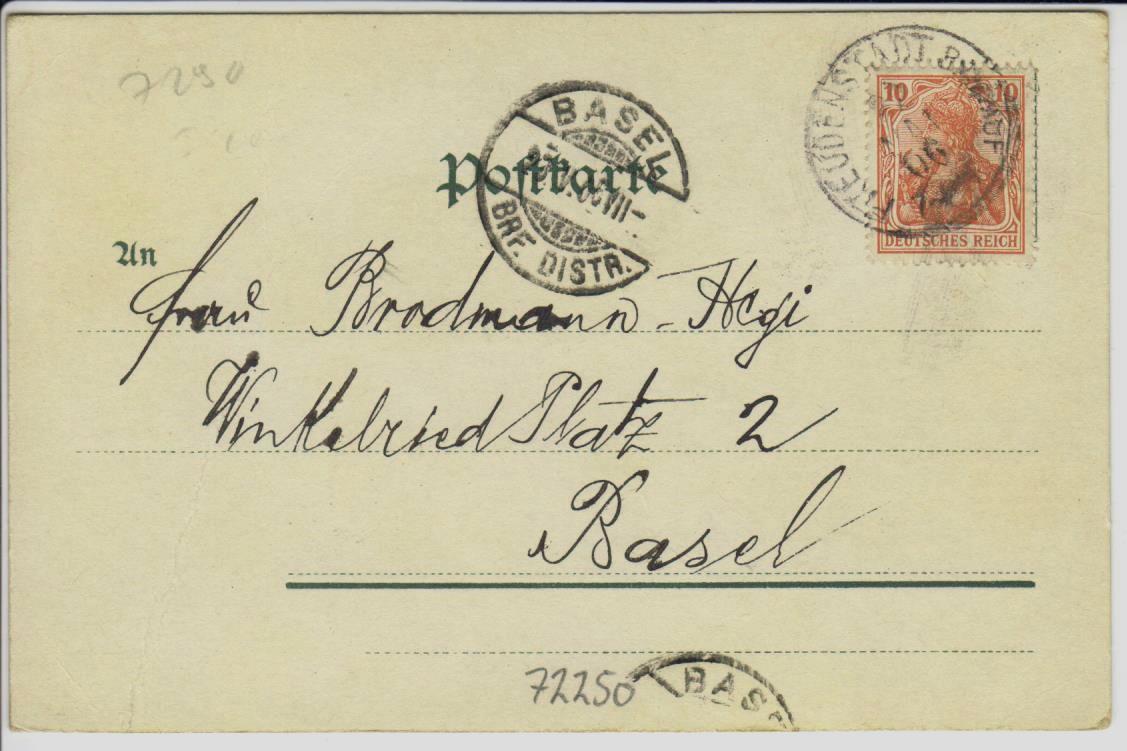 7290
FREUDENSTADT BAHNHOF
10 10
06
DEUTSCHES REICH
BASEL
BRF. DISTR.
Postkarte
An
Frau Brodmann-Hegi
Winkelried Platz 2
Basel
72250
BASE